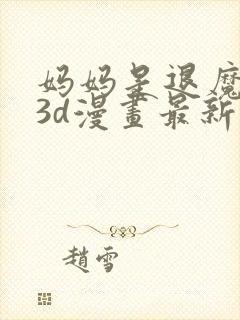 妈妈是退魔
3d漫畫最新
趙雪